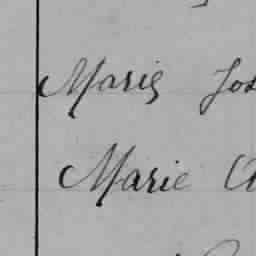 Marie Jos
Marie